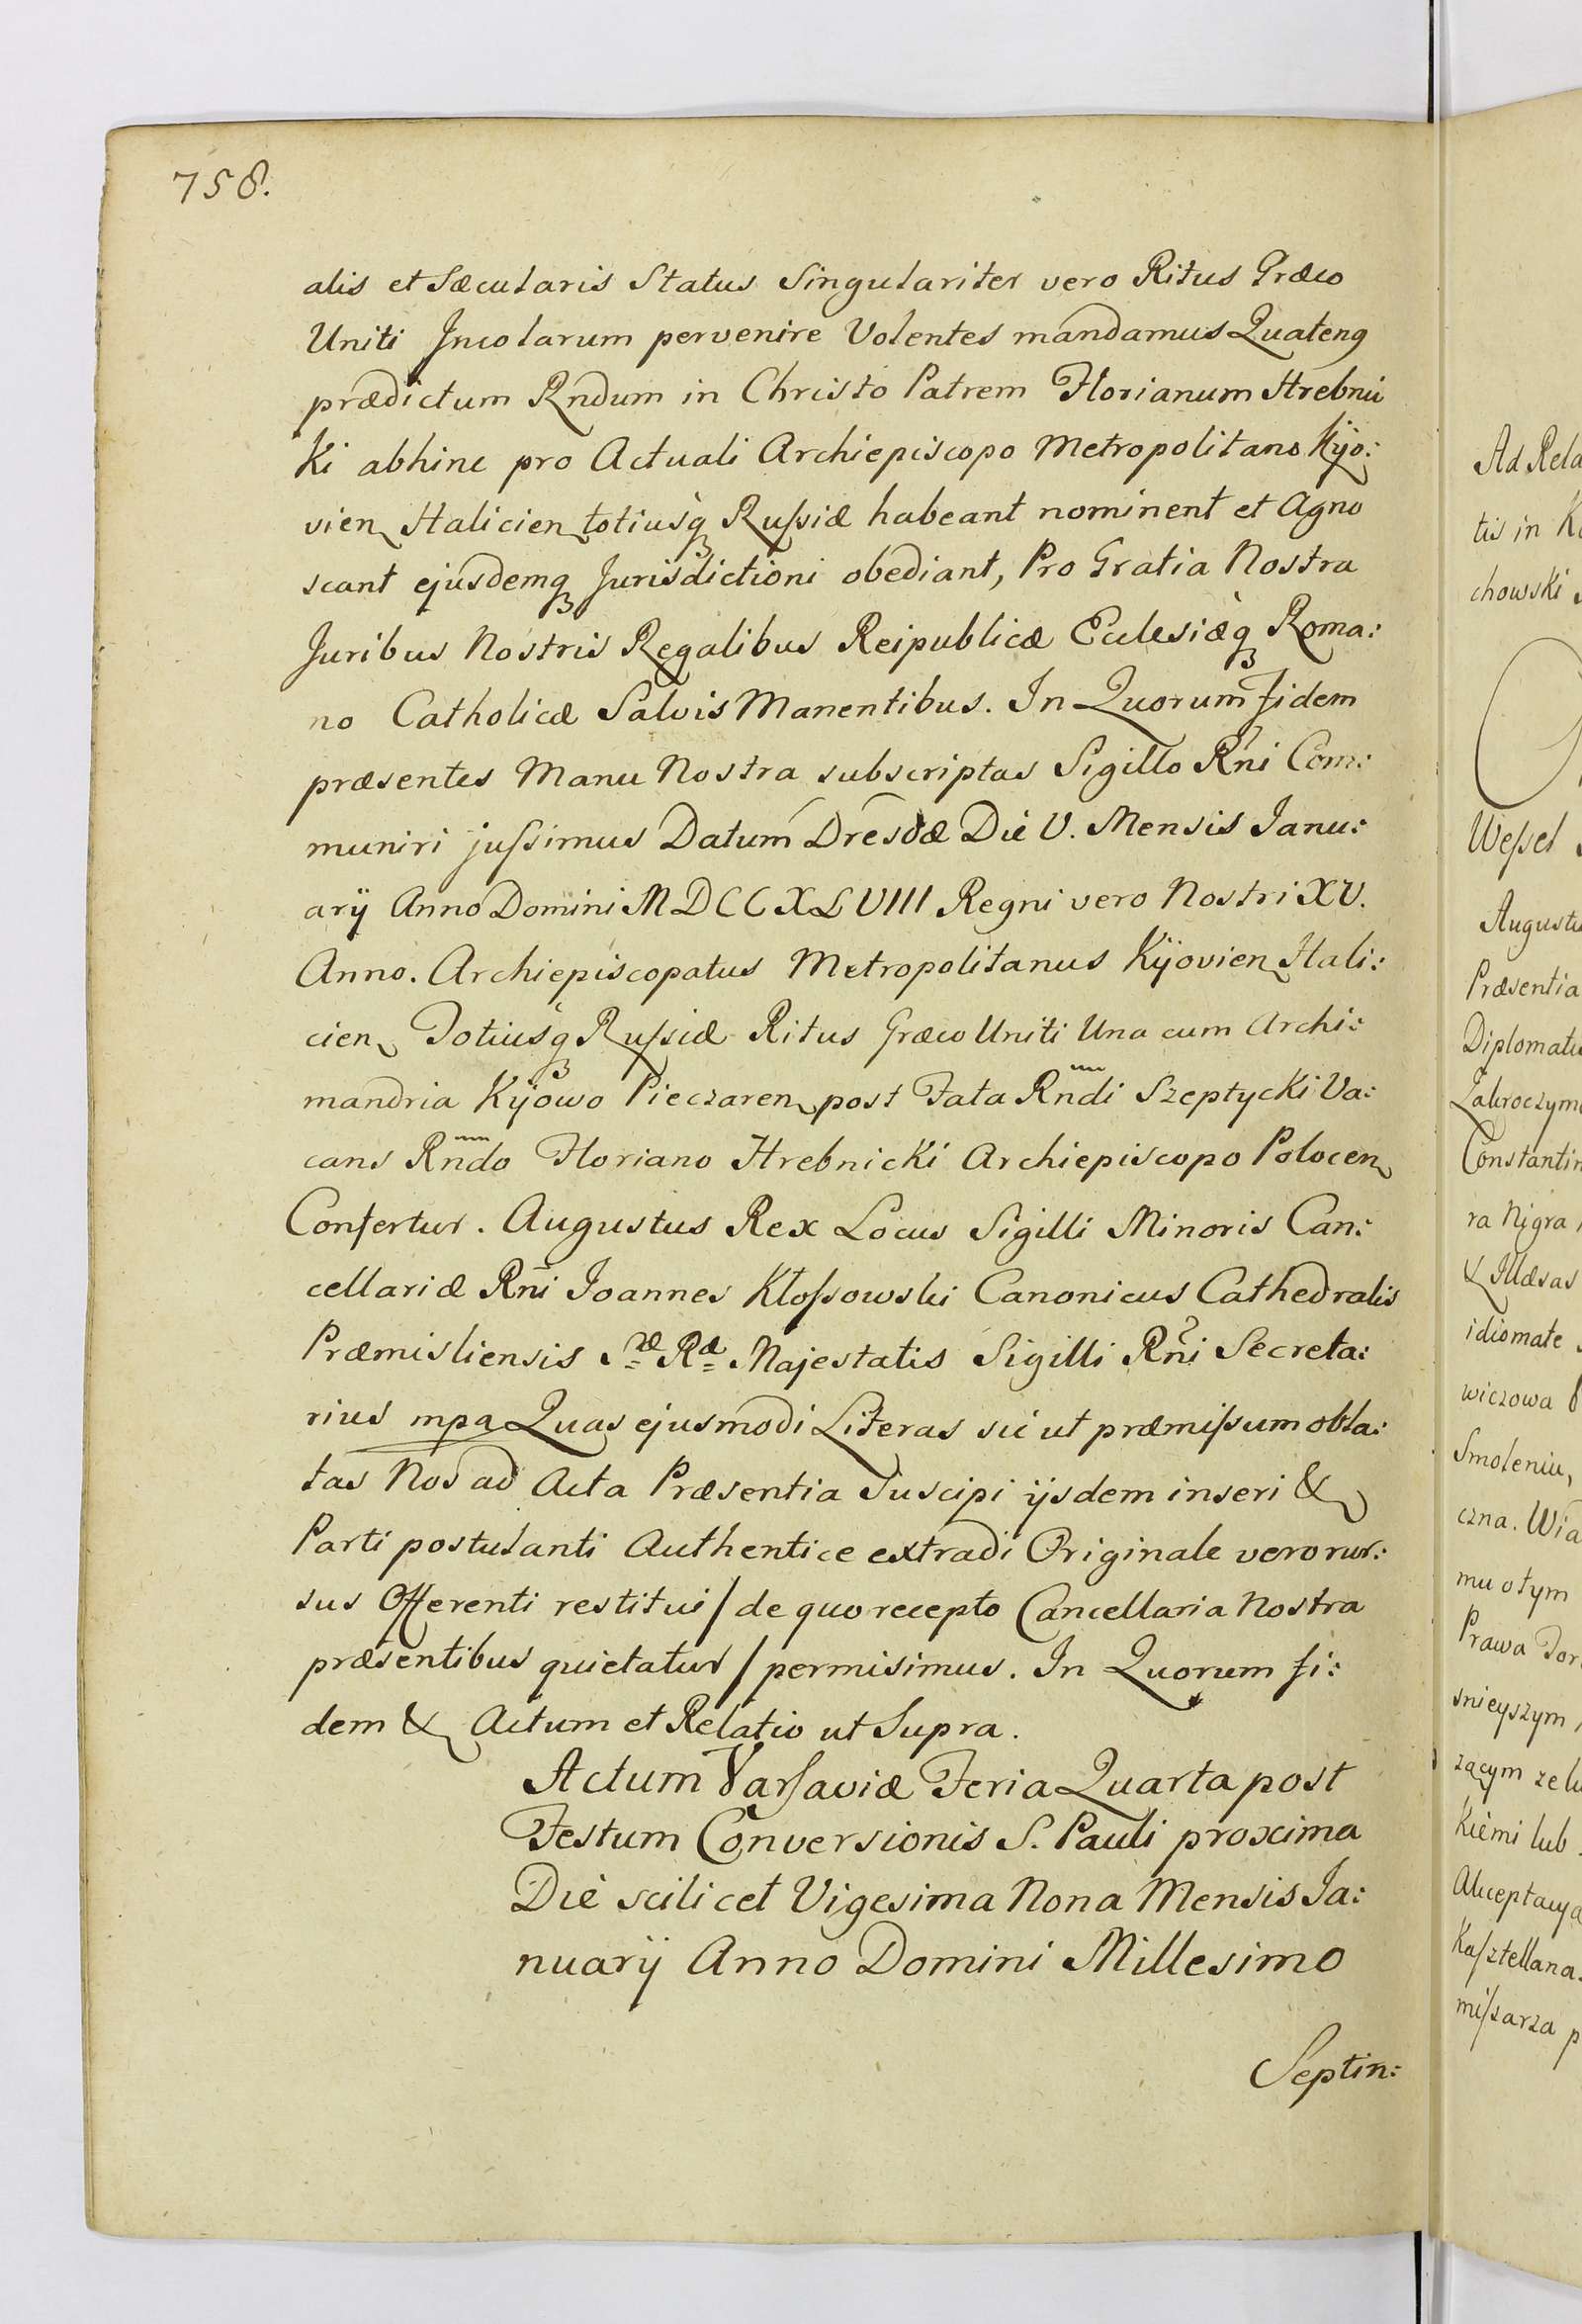 758.
alis et Sæcularis Status Singulariter vero Ritus Græco
Uniti Incolarum pervenire Volentes mandamus Quatenq
prædictum Rndum in Christo Patrem Florianum Hrebnic
Ki abhinc pro Actuali Archiepiscopo Metropolitano Kijo:
vien Halicien totiusq Rufsiæ habeant nominent et Agno
scant ejusdemq Jurisdictioni obediant, Pro Gratia Nostra
Juribus Nostris Regalibus Reipublicæ Ecclesiæq Roma:
no Catholicæ Salvis Manentibus. In Quorum Fidem
præsentes Manu Nostra subscriptas Sigillo Rni Com:
muniri jufsimus Datum Dresdæ Die V. Mensis Janu:
arij Anno Domini MDCCXLVIII Regni vero Nostri XV.
Anno. Archiepiscopatus Metropolitanus Kijovien Hali:
cien Totiusq Rufsiæ Ritus Græco Uniti Una cum Archi:
mandria Kijowo Pieczaren post Fata Rndi Szeptycki Va:
cans Rndo Floriano Hrebnicki Archiepiscopo Polocen
Confertur. Augustus Rex Locus Sigilli Minoris Can:
cellariæ Rni Joannes Klofsowski Canonicus Cathedralis
Præmisliensis Sæ Ræ Majestatis Sigilli Rni Secreta:
rius mpa Quas ejusmodi Literas sic ut præmifsum obla:
tas Nos ad Acta Præsentia Suscipi ijsdem inseri &
Parti postulanti Authentice extradi Originale vero rur:
sus Offerenti restitui / de quo recepto Cancellaria Nostra
præsentibus quietatur / permisimus. In Quorum fi:
dem & Actum et Relatio ut Supra.
Actum Varsaviæ Feria Quarta post
Festum Conversionis S. Pauli proxima
Die scilicet Vigesima Nona Mensis Ja:
nuarij Anno Domini Millesimo
Septin:
Ad Rela
tis in K
chowski
Wefsel
Augustu
Præsentia
Diplomatu
Zakroczym
Constantin
ra Nigra
& Illæsas
idiomate
wiczowa
Smoleniu,
czna. Wia
mu o tym
Prawa Tor
snieyszym
zącym ze
Kiemi lub
Akceptacya
Kafztellana
mifsarza p